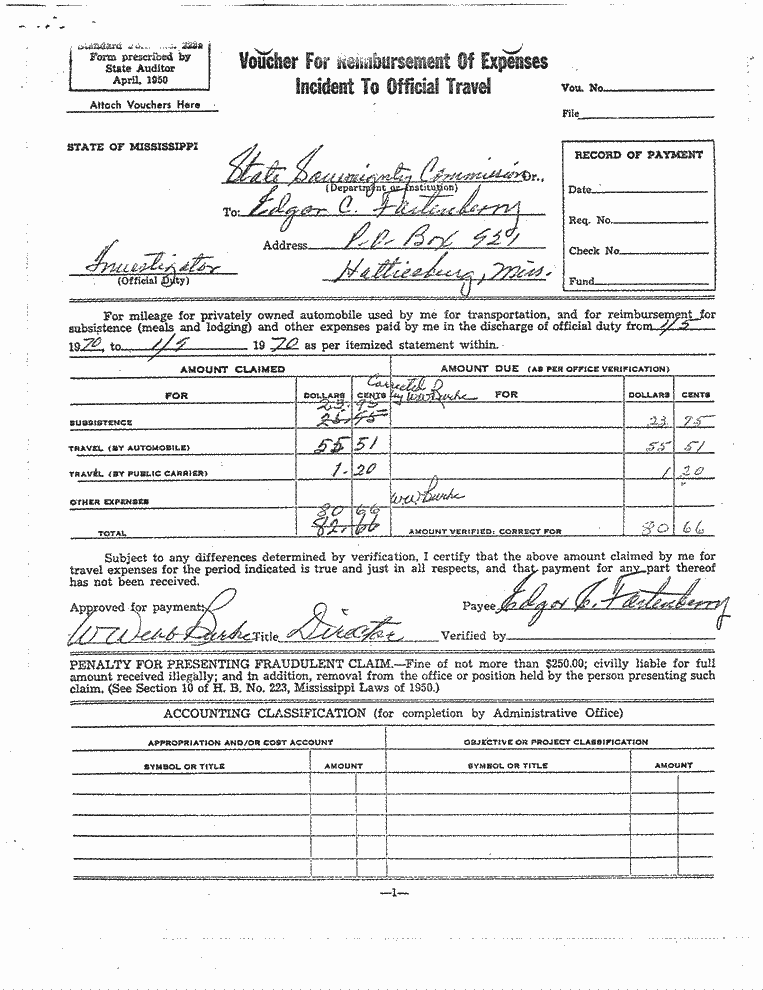 Form prescribed by
State Auditor
April, 1950
Attach Vouchers Here
Voucher For Reimbursement Of Expenses
Incident To Official Travel
Vou. No.
File
STATE OF MISSISSIPPI
State Sovereignty Commission Dr.,
(Department or Institution)
To: Edgar C. Fortenberry
Address P.O. Box 929
Hattiesburg, Miss.
Investigator
(Official Duty)
RECORD OF PAYMENT
Date
Req. No.
Check No.
Fund
For mileage for privately owned automobile used by me for transportation, and for reimbursement for
subsistence (meals and lodging) and other expenses paid by me in the discharge of official duty from 1/5
1970, to 1/9 1970 as per itemized statement within.
AMOUNT CLAIMED AMOUNT DUE (AS PER OFFICE VERIFICATION)
Corrected
FOR DOLLARS CENTS by WW Burke FOR DOLLARS CENTS
23 95
SUBSISTENCE 25 95 23 95
TRAVEL (BY AUTOMOBILE) 55 51 55 51
TRAVEL (BY PUBLIC CARRIER) 1 20 1 20
OTHER EXPENSES WW Burke
80 66
TOTAL 82 66 AMOUNT VERIFIED: CORRECT FOR 80 66
Subject to any differences determined by verification, I certify that the above amount claimed by me for
travel expenses for the period indicated is true and just in all respects, and that payment for any part thereof
has not been received.
Approved for payment: Payee Edgar C. Fortenberry
W Webb Burke Title Director Verified by
PENALTY FOR PRESENTING FRAUDULENT CLAIM.—Fine of not more than $250.00; civilly liable for full
amount received illegally; and in addition, removal from the office or position held by the person presenting such
claim. (See Section 10 of H. B. No. 223, Mississippi Laws of 1950.)
ACCOUNTING CLASSIFICATION (for completion by Administrative Office)
APPROPRIATION AND/OR COST ACCOUNT OBJECTIVE OR PROJECT CLASSIFICATION
SYMBOL OR TITLE AMOUNT SYMBOL OR TITLE AMOUNT
—1—